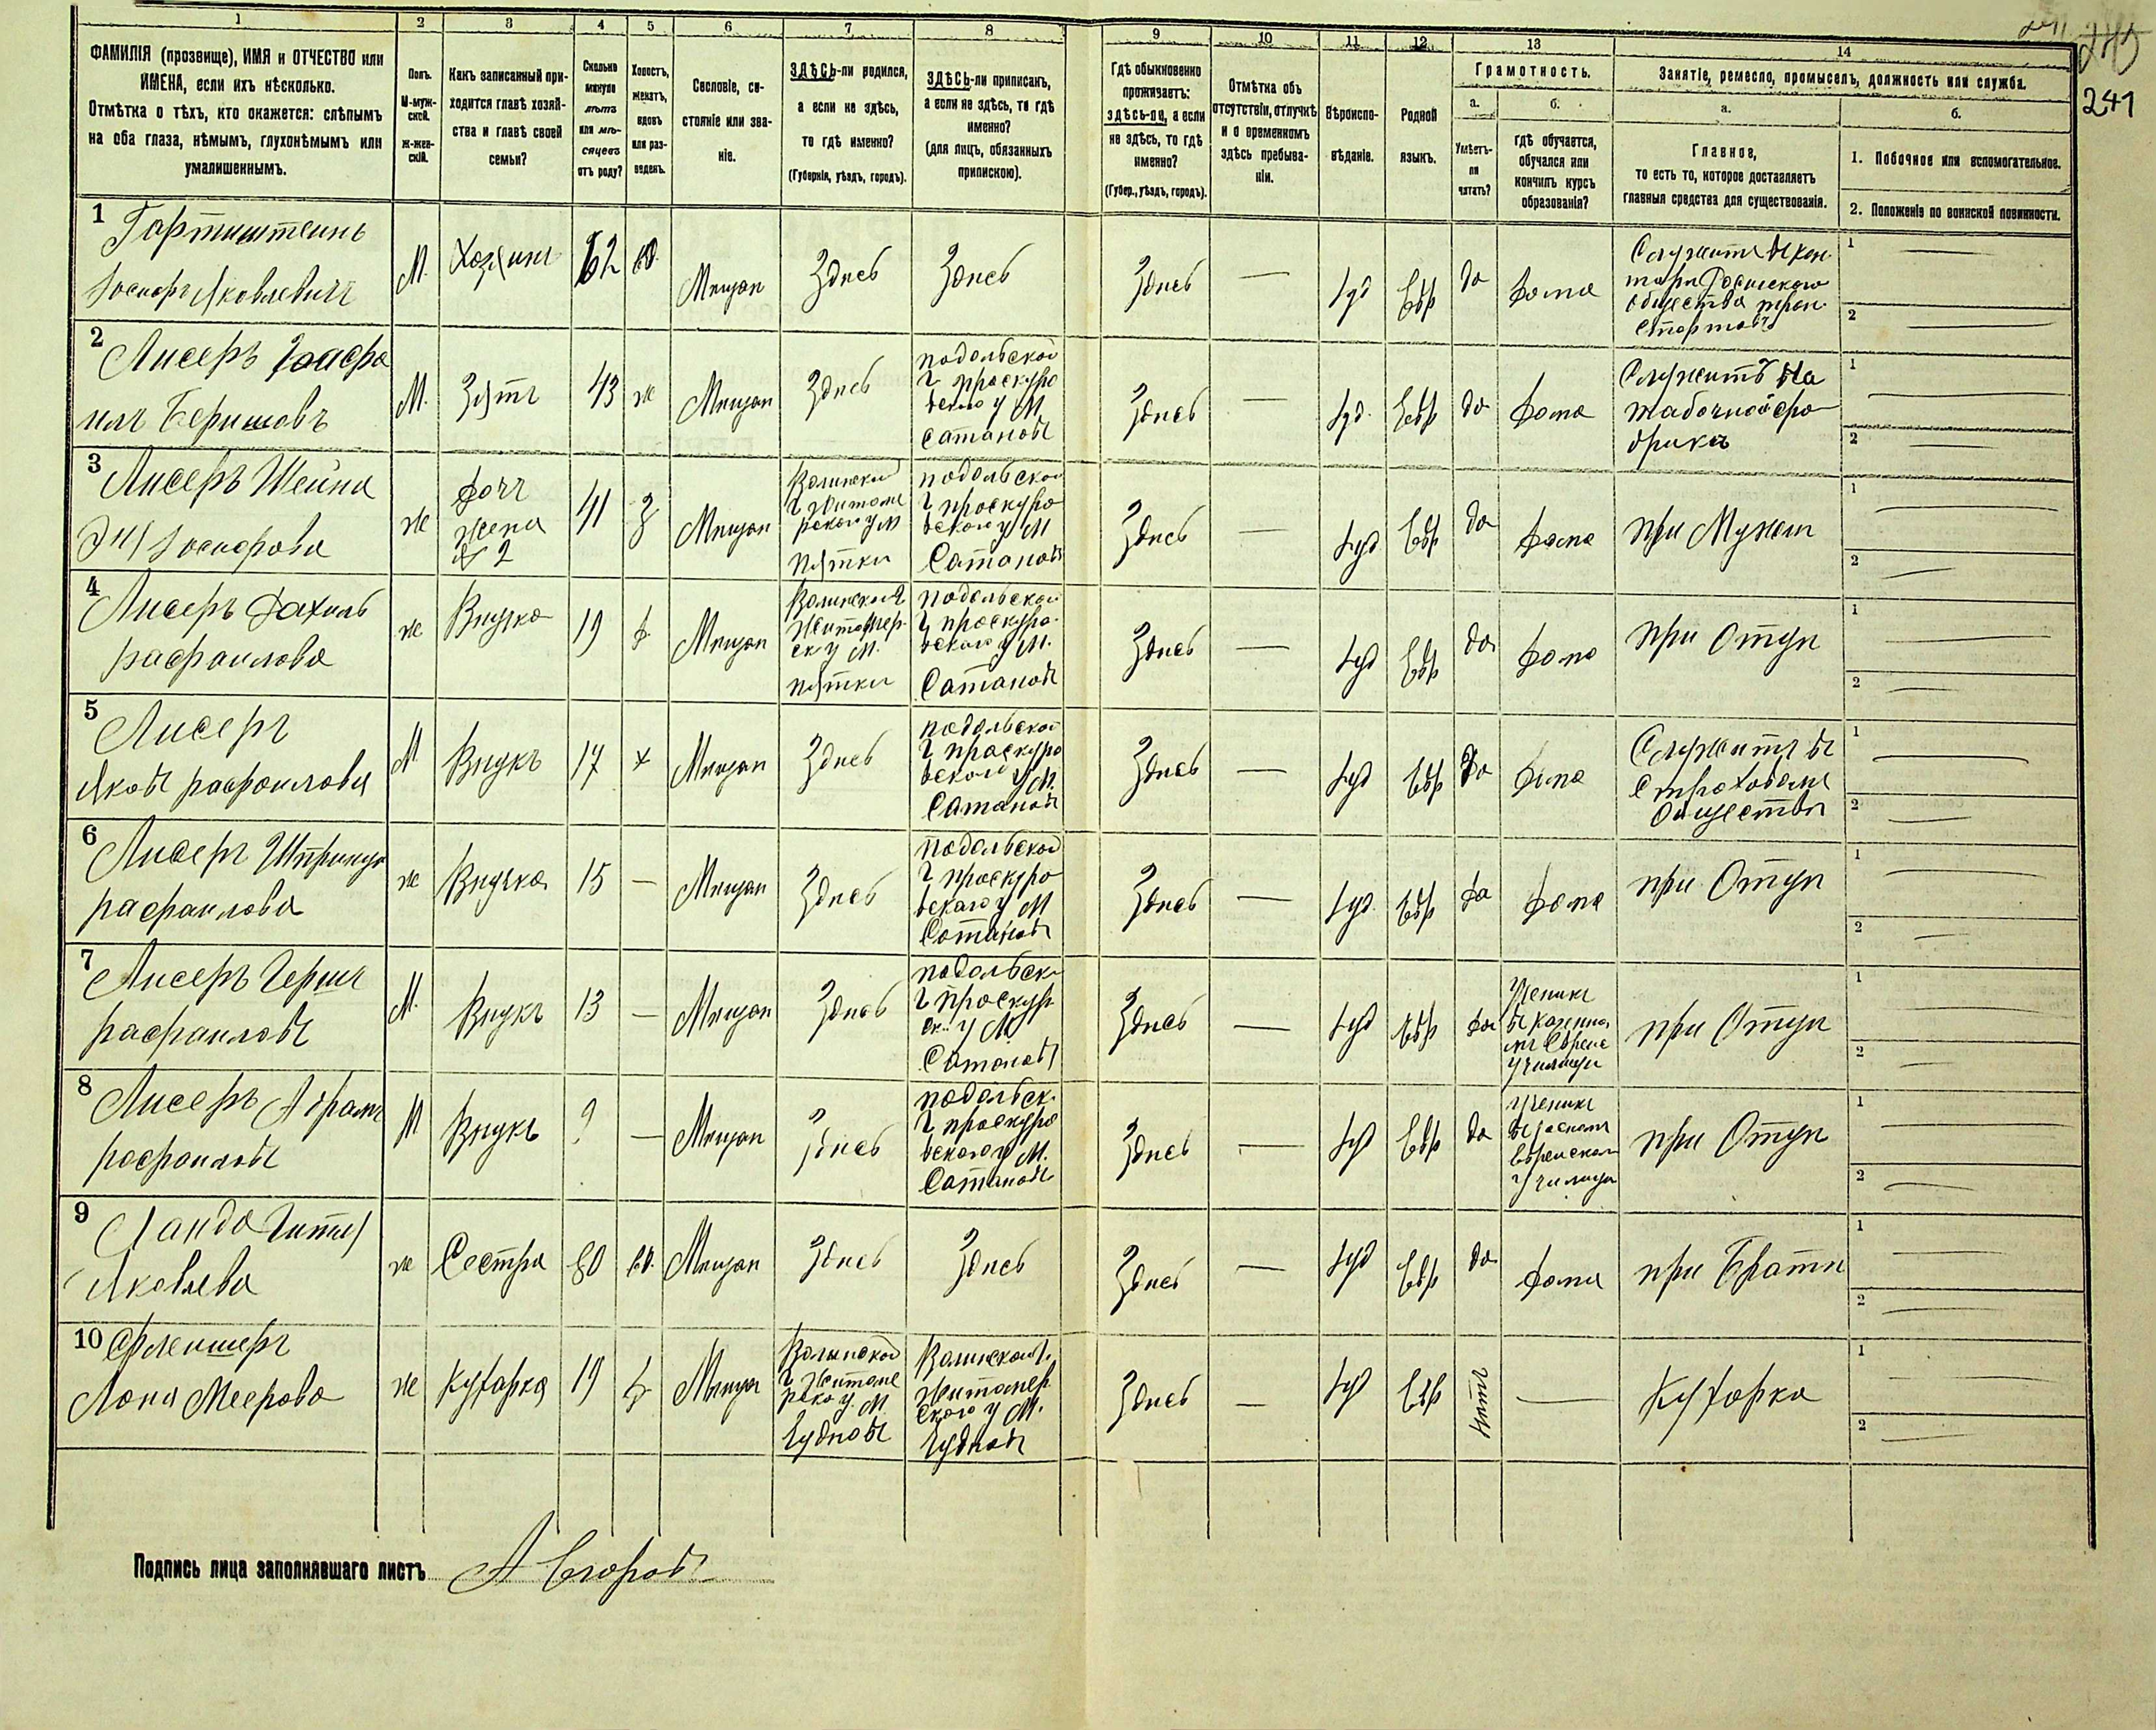 241
245
241
1
2
3
4
5
6
7
8
9
10
11
12
13
14
ФАМИЛІЯ (прозвище), ИМЯ и ОТЧЕСТВО или
ИМЕНА, если ихъ нѣсколько.
Отмѣтка о тѣхъ, кто окажется: слѣпымъ
на оба глаза, нѣмымъ, глухонѣмымъ или
умалишеннымъ.
Полъ.
М-муж-
ской.
Ж-жен-
скій.
Какъ записанный при-
ходится главѣ хозяй-
ства и главѣ своей
семьи?
Сколько
минуло
лѣтъ
или мѣ-
сяцевъ
отъ роду?
Холостъ,
женатъ,
вдовъ
или раз-
веденъ.
Сословіе, со-
стояніе или зва-
ніе.
ЗДѢСЬ-ли родился,
а если не здѣсь,
то гдѣ именно?
(Губернія, уѣздъ, городъ).
ЗДѢСЬ-ли приписанъ,
а если не здѣсь, то гдѣ
именно?
(для лицъ, обязанныхъ
припискою).
Гдѣ обыкновенно
проживаетъ:
здѣсь-ли, а если
не здѣсь, то гдѣ
именно?
(Губер., уѣздъ, городъ).
Отмѣтка объ
отсутствіи, отлучкѣ
и о временномъ
здѣсь пребыва-
ніи.
Вѣроиспо-
вѣданіе.
Родной
языкъ.
Грамотность.
а.
Умѣетъ-
ли
читать?
б.
гдѣ обучается,
обучался или
кончилъ курсъ
образованія?
Занятіе, ремесло, промыселъ, должность или служба.
а.
Главное,
то есть то, которое доставляетъ
главныя средства для существованія.
б.
1. Побочное или вспомогательное.
2. Положеніе по воинской повинности.
1
Іосифъ Яковлевичъ
М.
Хозяинъ
62
вд.
Мещан
Здесь
Здесь
Здесь
—
Іуд
Евр
да
дома
Служитъ въ кон
торе Росийскаго
общества тран
спортовъ
1 —
2 —
2 Лисеръ
Беришовъ
М.
Зять
43
ж
Мещан
Здесь
подольской
г проскуро
вскаго у М
Сатановъ
Здесь
—
Іуд.
Евр
да
дома
Служитъ на
табачной фа
брике
1 —
2 —
3 Лисеръ Шейна
Іосифова
ж
дочь
жена
2
41
з
Мещан
Волинской
г Житоме
рскаго у М
Пятки
подольской
г проскуро
вскаго у М
Сатановъ
Здесь
—
Іуд
Евр
да
дома
при Муже
1 —
2 —
4 Лисеръ Рахиль
рафаилова
ж
Внучка
19
д
Мещан
Волинской г
Житомер
ск у М.
пятки
подольской
г проскуро
вскаго у М.
Сатановъ
Здесь
—
Іуд
Евр
да
дома
при Отце
1 —
2 —
5 Лисеръ
Яковъ рафаилови
М
Внукъ
17
х
Мещан
Здесь
подольской
г проскуро
вскаго у М.
Сатановъ
Здесь
—
Іуд
Евр
да
дома
Служитъ въ
страховоме
Обществе
1 —
2 —
6 Лисеръ Шпринца
рафаилова
ж
Внучка
15
—
Мещан
Здесь
подольской
г проскуро
вскаго у М
Сатановъ
Здесь
—
Іуд.
Евр
да
дома
при Отце
1 —
2 —
7 Лисеръ Гершъ
рафаиловъ
М.
Внукъ
13
—
Мещан
Здесь
подольск
г проскур
ск. у М
Сатановъ
Здесь
—
Іуд
Евр
да
Ученикъ
въ казенно
мъ Еврейс
училище
при Отце
1 —
2 —
8 Лисеръ Абрамъ
рафаиловъ
М
Внукъ
9
—
Мещан
Здесь
подольск.
г проскуро
вскаго у М.
Сатановъ
Здесь
—
Іуд
Евр
да
Ученикъ
еврейскомъ
Училище
при Отце
1 —
2 —
9 Ландо Гитля
Яковлева
ж
Сестра
60
вд.
Мещан
Здесь
Здесь
Здесь
—
Іуд
Евр
да
дома
при Брате
1 —
2 —
10 Флейшеръ
Меерова
ж
Кухарка
19
Мещан
Волынской
г Житоме
рско у. М
Чудновъ
Волинской г.
Житомер
скаго у М.
Чудновъ
Здесь
—
Іуд
Евр
нетъ
—
Кухарка
1 —
2 —
Подпись лица заполнявшаго листъ А Егоровъ